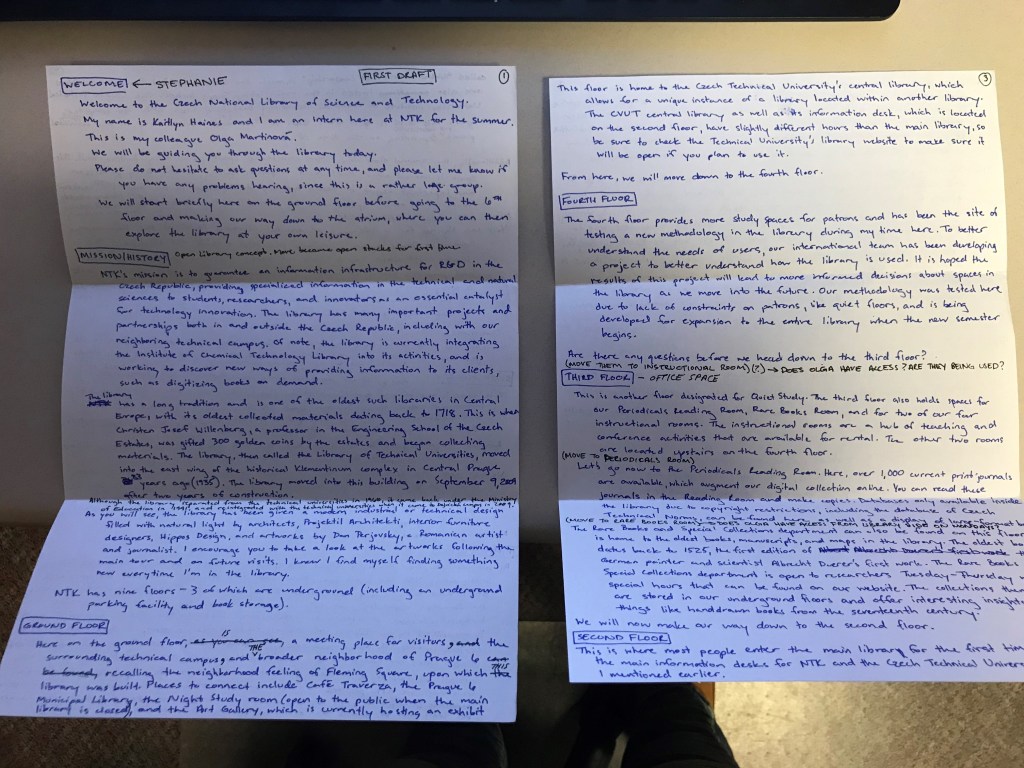 WELCOME ← STEPHANIE
FIRST DRAFT
1
Welcome to the Czech National Library of Science and Technology.
My name is Kaitlyn Haines and I am an intern here at NTK for the summer.
This is my colleague Olga Martinová.
We will be guiding you through the library today.
Please do not hesitate to ask questions at any time, and please let me know if
you have any problems hearing, since this is a rather large group.
We will start briefly here on the ground floor before going to the 6TH
floor and making our way down to the atrium, where you can then
explore the library at your own leisure.
MISSION/HISTORY Open library concept. More became open stacks for first time
NTK's mission is to guarantee an information infrastructure for R&D in the
Czech Republic, providing specialized information in the technical and natural
sciences to students, researchers, and innovators as an essential catalyst
for technology innovation. The library has many important projects and
partnerships both in and outside the Czech Republic, including with our
neighboring technical campus. Of note, the library is currently integrating
the Institute of Chemical Technology Library into its activities, and is
working to discover new ways of providing information to its clients,
such as digitizing books on demand.
The library
has a long tradition and is one of the oldest such libraries in Central
Europe, with its oldest collected materials dating back to 1718. This is when
Christen Josef Willenberg, a professor in the Engineering School of the Czech
Estates, was gifted 300 golden coins by the estates and began collecting
materials. The library, then called the Library of Technical Universities, moved
into the east wing of the historical Klementinum complex in Central Prague
years ago (1935). The library moved into this building on September 9, 2009
after two years of construction.
Although the library was from technical universities in 1960, it came back under the Ministry
of Education in and reintegrated with the technical universities when it came to
As you will see, the library has been given a modern industrial or technical design
filled with natural light by architects, Projektil Architekti, interior furniture
designers, Hippos Design, and artworks by Dan Perjovsky, a Romanian artist
and journalist. I encourage you to take a look at the artworks following the
main tour and on future visits. I know I find myself finding something
new everytime I'm in the library.
NTK has nine floors – 3 of which are underground (including an underground
parking facility and book storage).
GROUND FLOOR
Here on the ground floor, as you can see, IS a meeting place for visitors, and the
surrounding technical campus, and THE broader neighborhood of Prague 6 can
be found, recalling the neighborhood feeling of Fleming Square, upon which the THIS
library was built. Places to connect include Café Traverza, the Prague 6
Municipal Library, the Night Study room (open to the public when the main
library is closed), and the Art Gallery, which is currently hosting an exhibit
3
This floor is home to the Czech Technical University's central library, which
allows for a unique instance of a library located within another library.
The CVUT central library as well as its information desk, which is located
on the second floor, have slightly different hours than the main library, so
be sure to check the Technical University's library website to make sure it
will be open if you plan to use it.
From here, we will move down to the fourth floor.
FOURTH FLOOR
The fourth floor provides more study spaces for patrons and has been the site of
testing a new methodology in the library during my time here. To better
understand the needs of users, our international team has been developing
a project to better understand how the library is used. It is hoped the
results of this project will lead to more informed decisions about spaces in
the library as we move into the future. Our methodology was tested here
due to lack of constraints on patrons, like quiet floors, and is being
developed for expansion to the entire library when the new semester
begins.
Are there any questions before we head down to the third floor?
(MOVE THEM TO INSTRUCTIONAL ROOM)(?) → DOES OLGA HAVE ACCESS? ARE THEY BEING USED?
THIRD FLOOR – OFFICE SPACE
This is another floor designated for Quiet Study. The third floor also holds spaces for
our Periodicals Reading Room, Rare Books Room, and for two of our four
instructional rooms. The instructional rooms are a hub of teaching and
conference activities that are available for rental. The other two rooms
are located upstairs on the fourth floor.
(MOVE TO PERIODICALS ROOM)
Let's go now to the Periodicals Reading Room. Here, over 1,000 current print journals
are available, which augment our digital collection online. You can read these
journals in the Reading Room and make copies. Databases only available inside
the library, due to copyright restrictions, including the database of Czech
Technical Norms, can be found here, as well as a display of
(MOVE TO RARE BOOKS ROOM) → DOES OLGA HAVE ACCESS FROM LIBRARY SIDE
The Rare Books and Special Collections department can also be found on this floor
is home to the oldest books, manuscripts, and maps in the library. The oldest
dates back to 1525, the first edition of
German painter and scientist Albrecht Duerer's first work. The Rare Books
Special Collections department is open to researchers Tuesday-Thursday
special hours that can be found on our website. The collections
are stored in our underground floors and offer interesting
things like handdrawn books from the seventeenth century.
We will now make our way down to the second floor.
SECOND FLOOR
This is where most people enter the main library for the first time
the main information desks for NTK and the Czech Technical
I mentioned earlier.